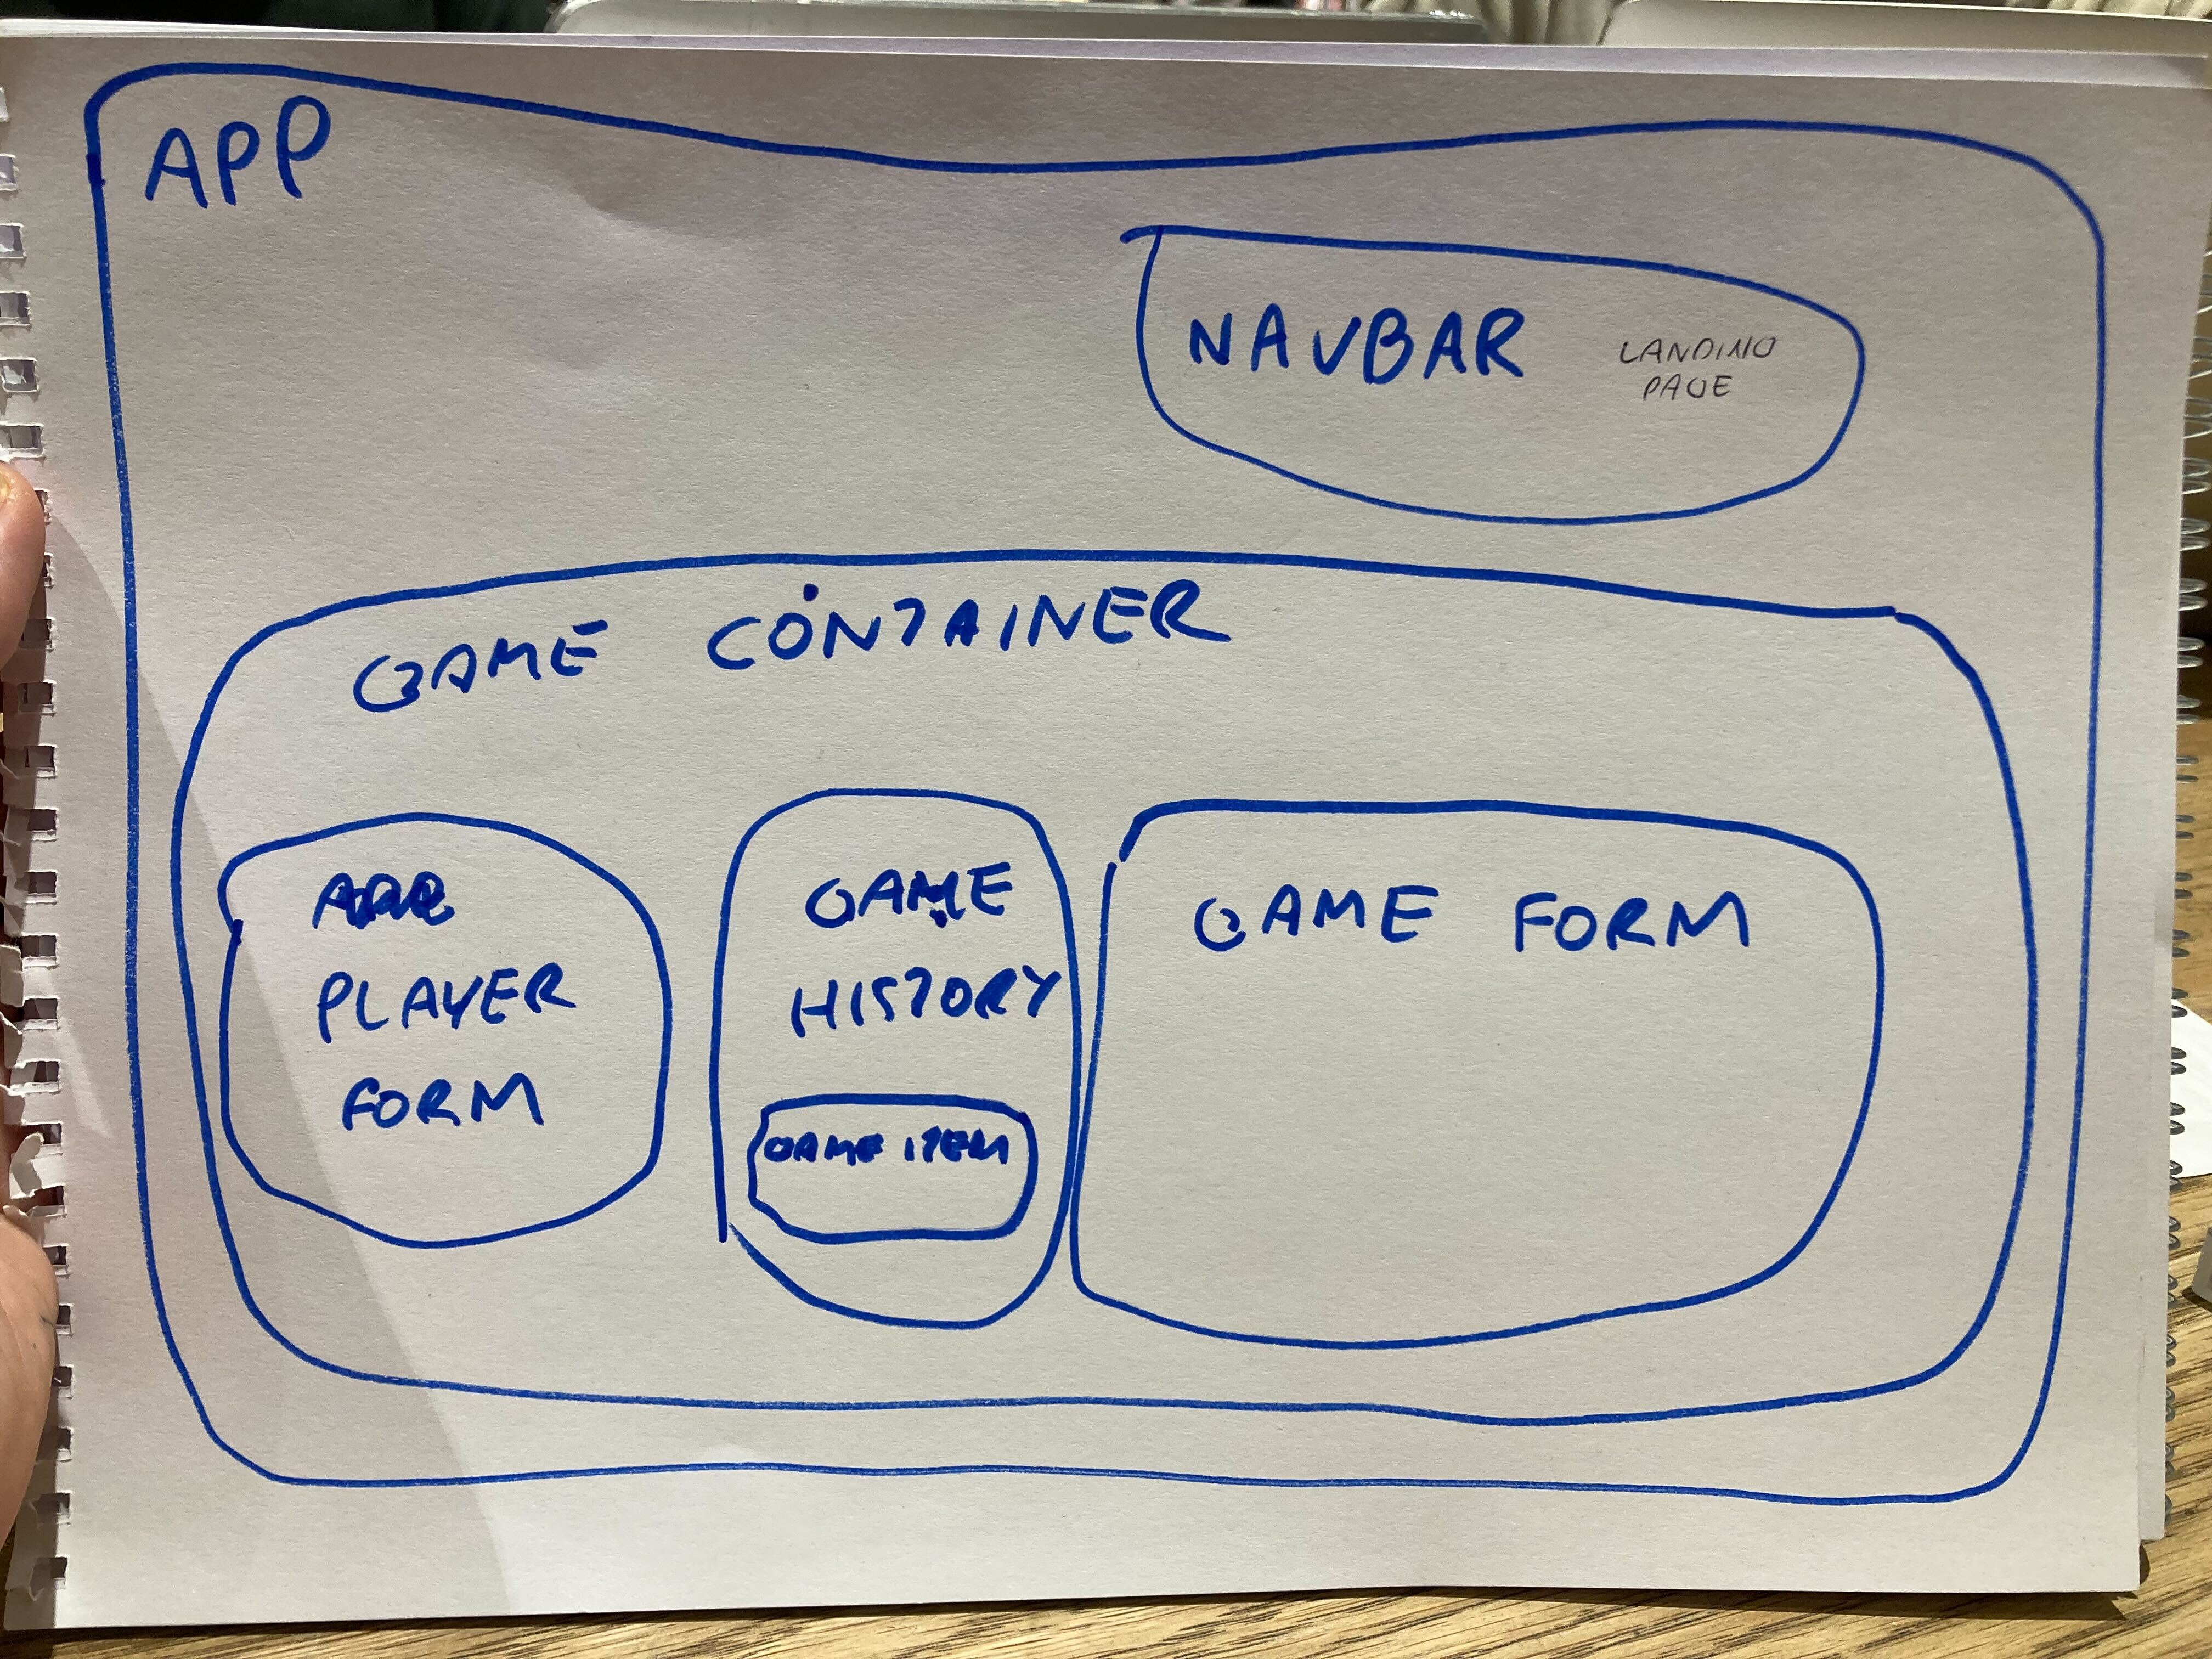 APP
NAVBAR
LANDING
PAGE
GAME CONTAINER
PLAYER
FORM
GAME
HISTORY
GAME ITEM
GAME FORM